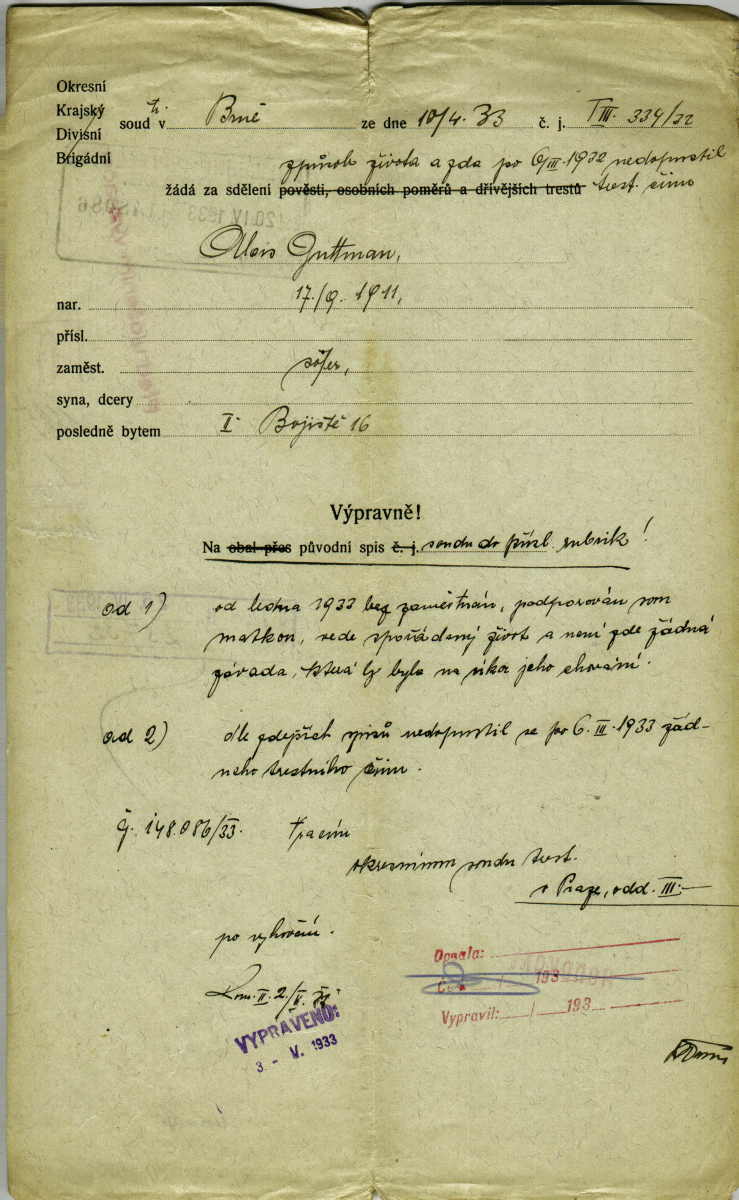 Okresní
Krajský
Divisní
Brigádní
tr.
soud v Brně ze dne 10/4. 33 č. j. T III. 334/32
způsob života a zda po 6/III. 1932 nedopustil
žádá za sdělení pověsti, osobních poměrů a dřívějších trestů trest. činu
Alois Guttman,
nar. 17./9. 1911,
přísl.
zaměst. šofer,
syna, dcery
posledně bytem II. Bojiště 16
Výpravně!
Na obal přes původní spis č. j. soudu do přísl. rubrik!
ad 1) od ledna 1933 bez zaměstnání, podporován svou
matkou, vede spořádaný život a není zde žádná
závada, která by byla na úkor jeho chování.
ad 2) dle zdejších spisů nedopustil se po 6. III. 1933 žád-
ného trestního činu.
Č. 148.086/33. Vrací se
okresnímu soudu trest.
v Praze, odd. III.
po vyhovění.
II. 2/V. 33
Opsala:
193
Vypravil: / 193
VYPRAVENO:
3 - V. 1933